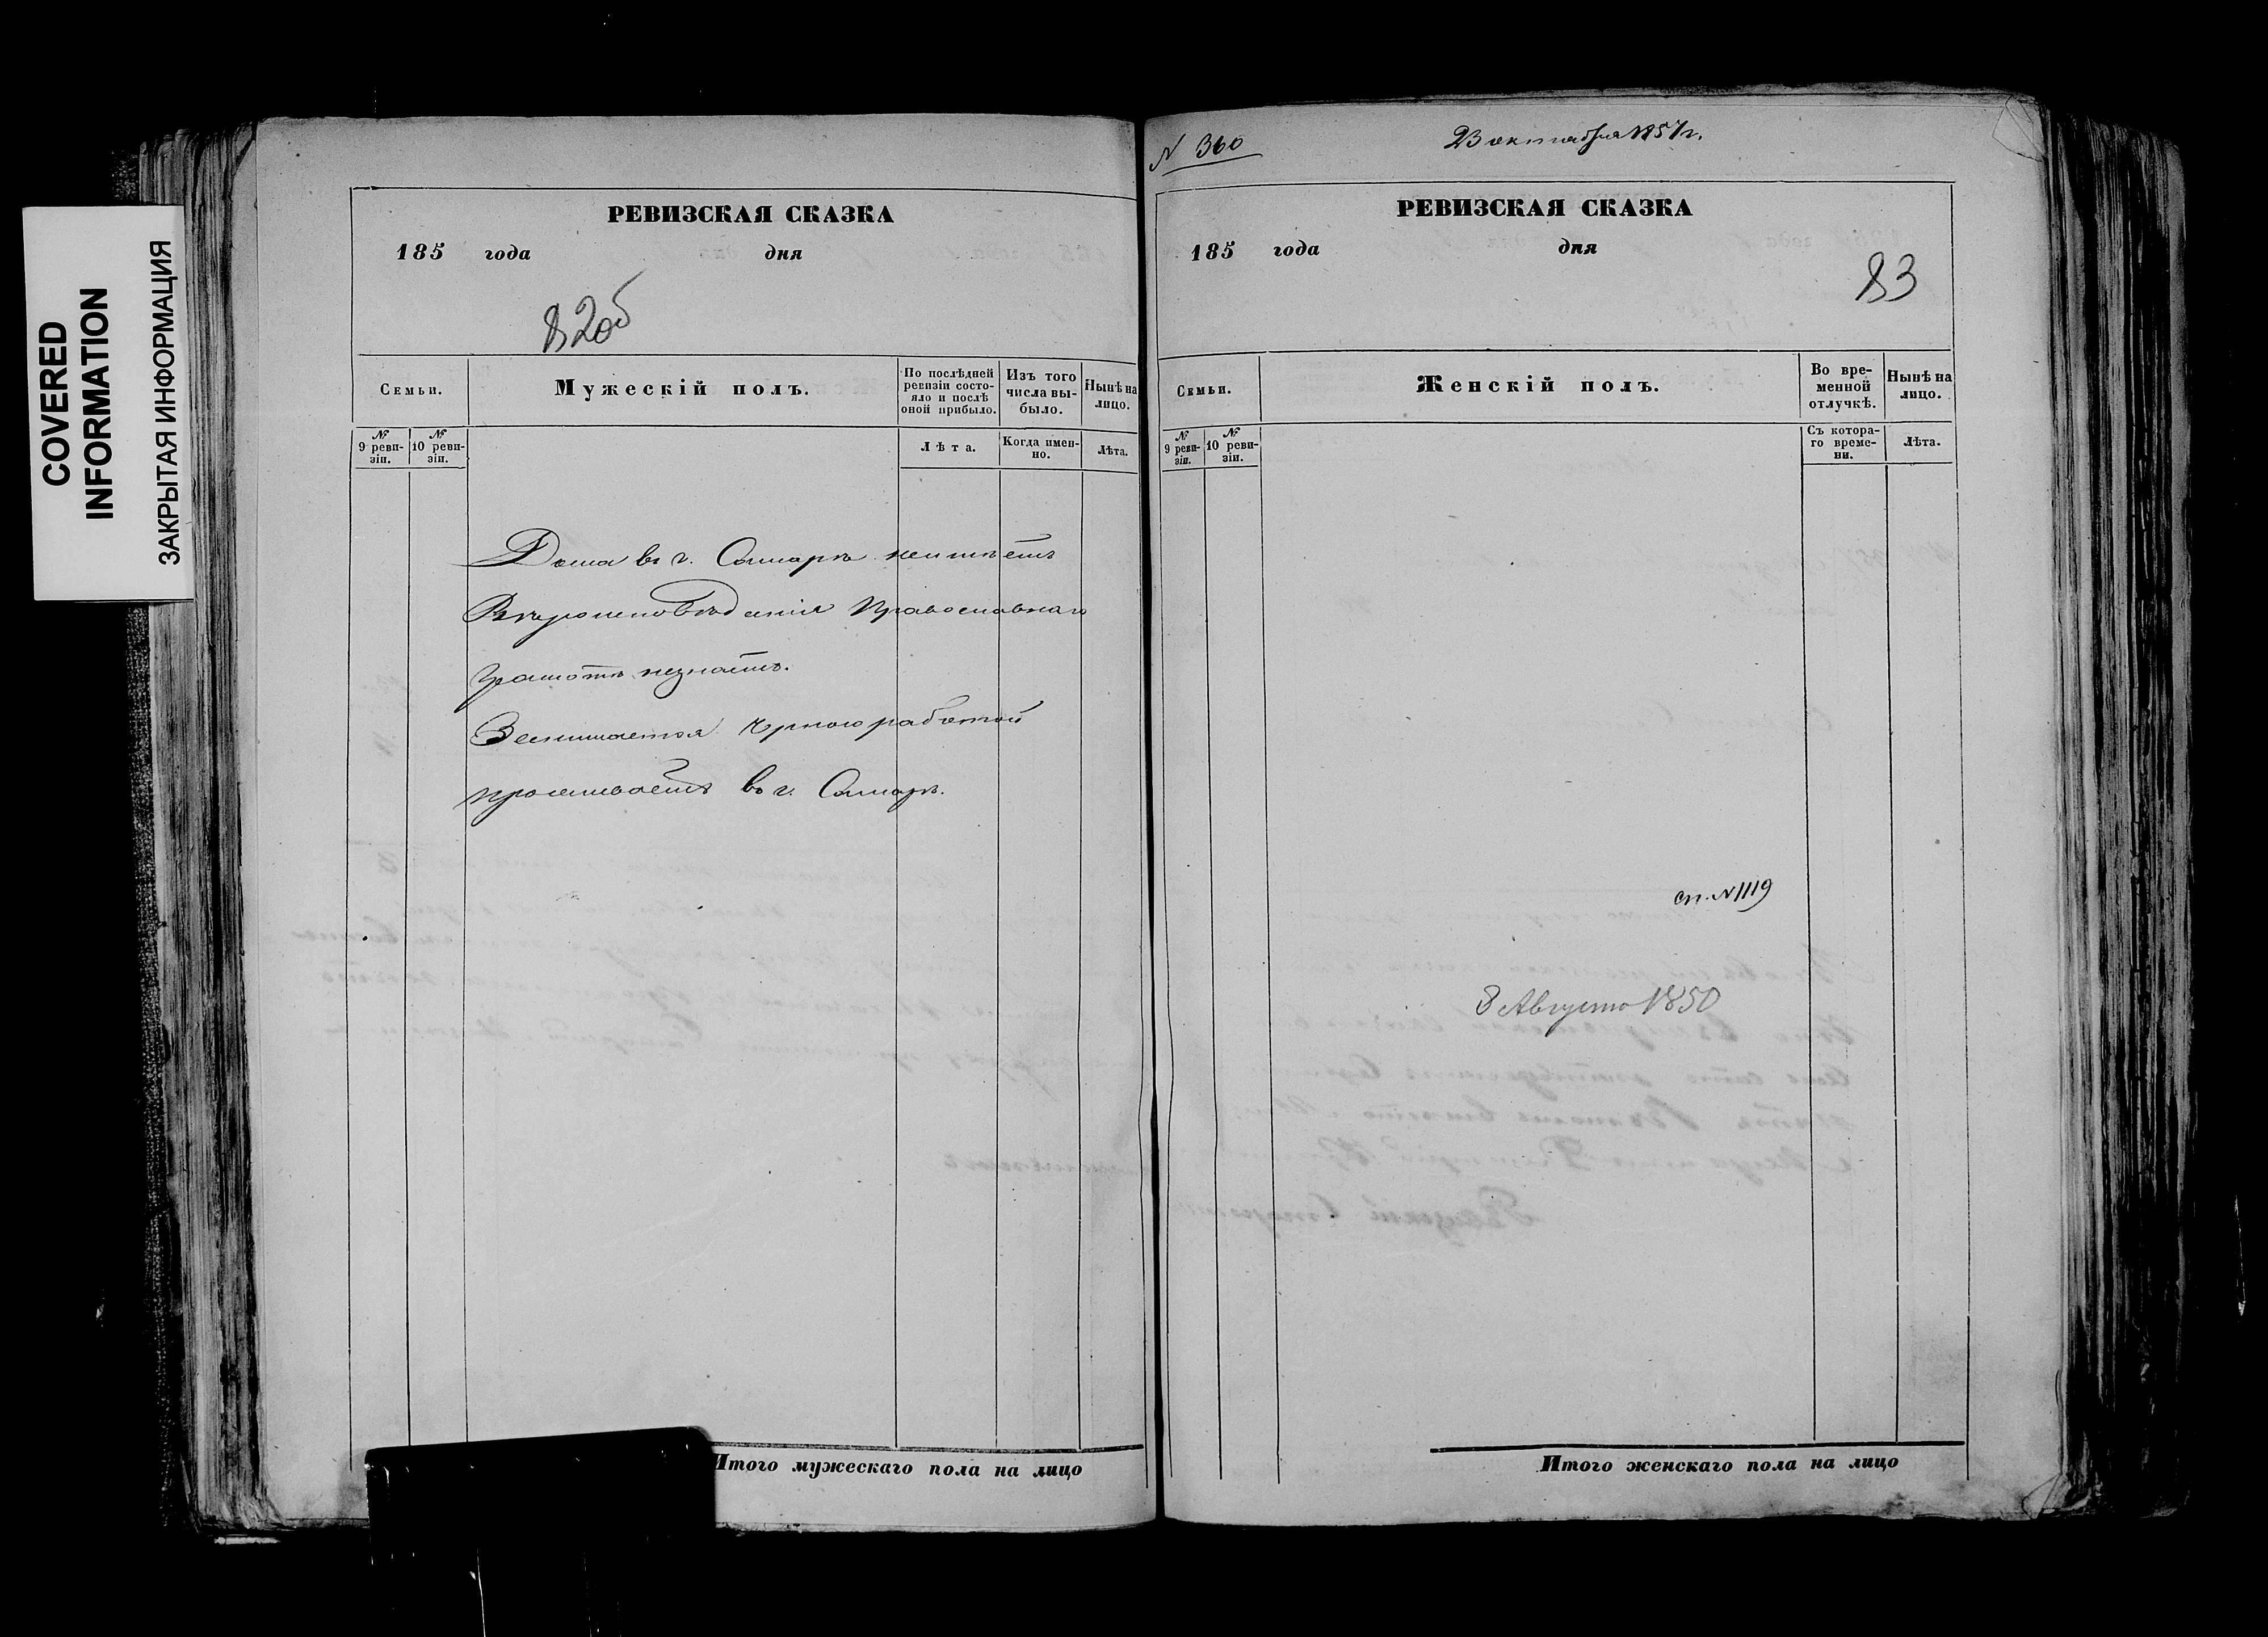 COVERED
INFORMATION
ЗАКРЫТАЯ ИНФОРМАЦИЯ
РЕВИЗСКАЯ СКАЗКА
185 года дня
82об
Семьи.
Мужескій полъ.
По послѣдней
ревизіи состо-
яло и послѣ
оной прибыло.
Изъ того
числа вы-
было.
Нынѣ на
лицо.
№
9 реви-
зіи.
№
10 реви-
зіи.
Лѣта.
Когда имен-
но.
Лѣта.
Дома въ г. Самарѣ неимѣетъ
Вѣроисповѣданія Православнаго
Грамотѣ незнаетъ.
Занимается Чрною работой
проживаетъ въ г. Самарѣ.
Итого мужескаго пола на лицо
N 360
23 октября 1857 г.
РЕВИЗСКАЯ СКАЗКА
185 года дня
83
Семьи.
Женскій полъ.
Во вре-
менной
отлучкѣ.
Нынѣ на
лицо.
№
9 реви-
зіи.
№
10 реви-
зіи.
Съ котора-
го време-
ни.
Лѣта.
сп. N 1119
8 Августа 1850
Итого женскаго пола на лицо